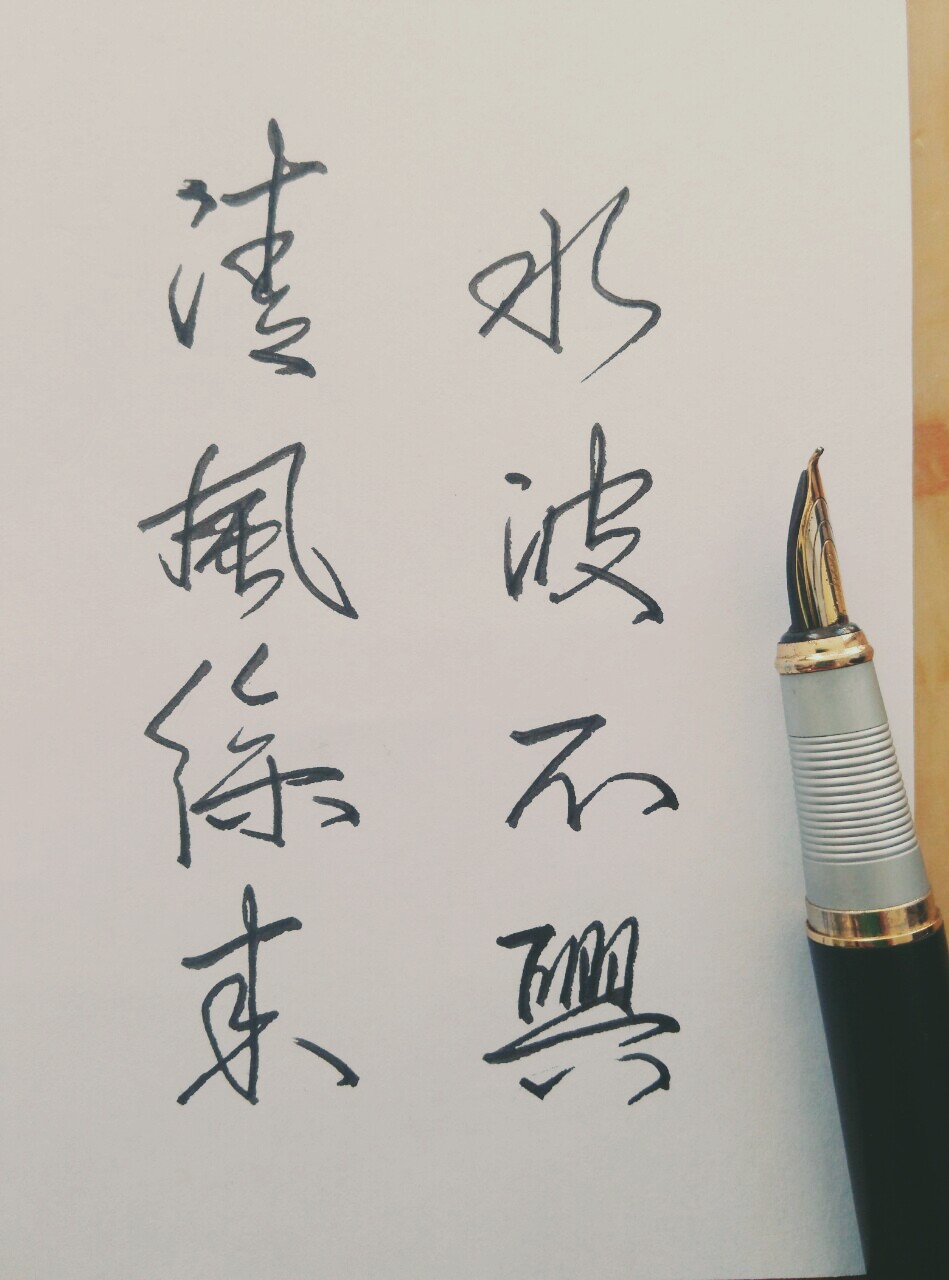 清風徐來
水波不興